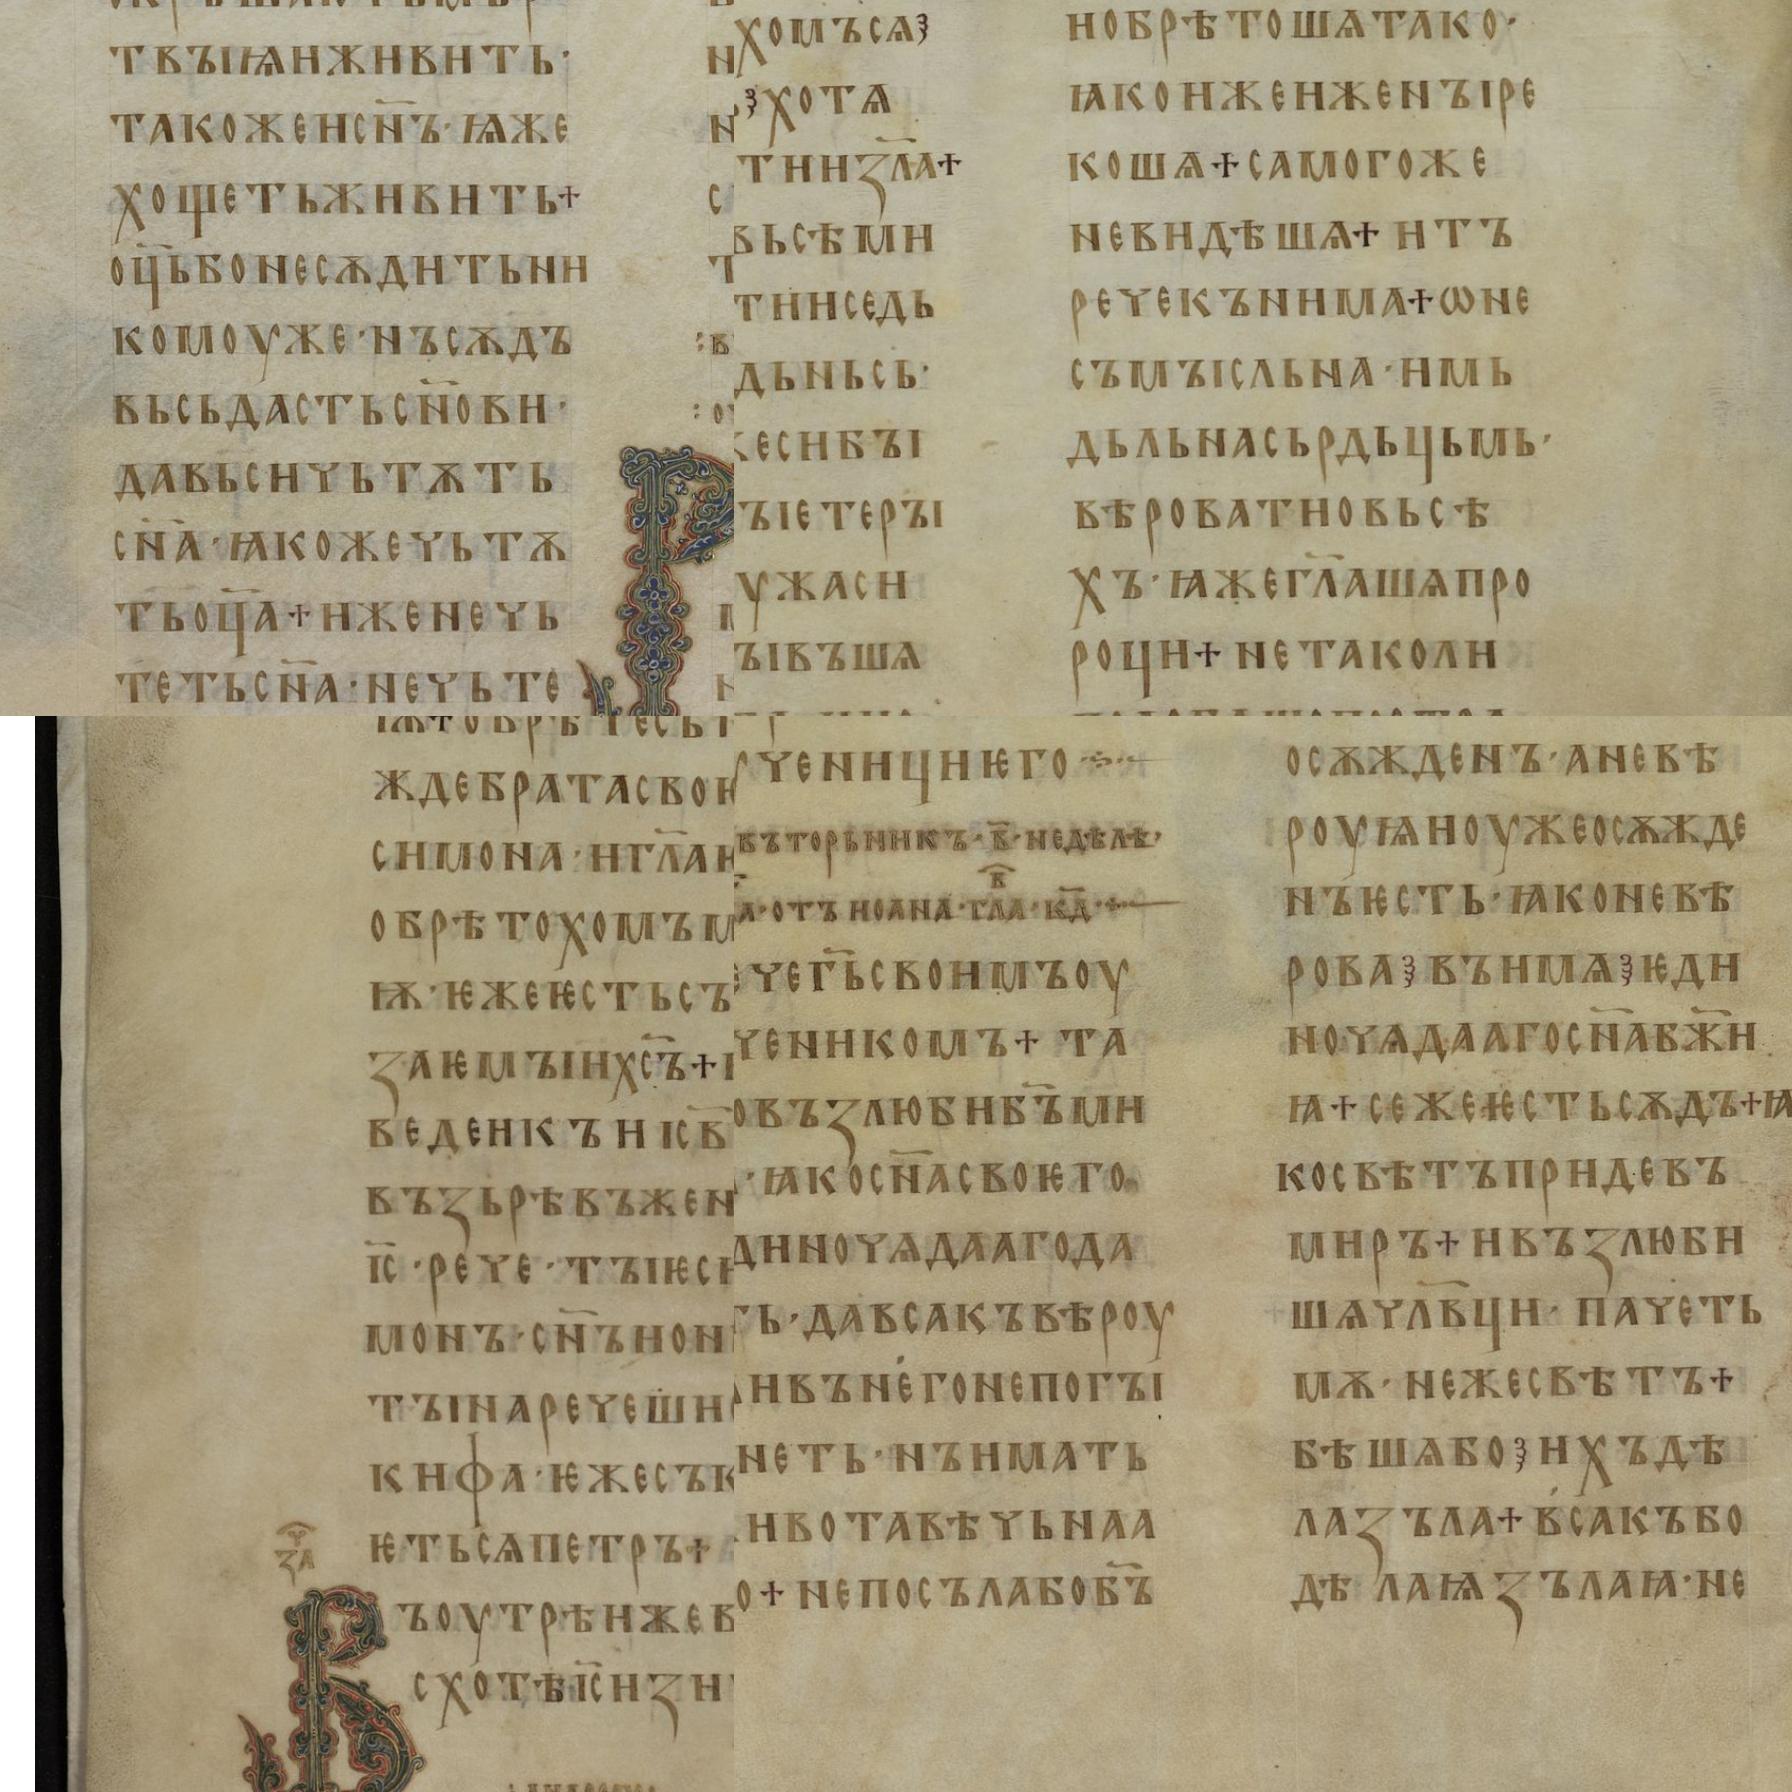 твъıѩиживить·
такожеисн҃ъ·ꙗже
хощетьживить+
оц҃ьбонесѫдитьни
комоуже·нъсѫдъ
вьсьдастьсн҃ови·
давьсичьтѫть
сн҃а·ꙗкожечьтѫ
тьоц҃а+иженечь
тетьсн҃а·нечьте
хомъсѧ
хотѧ
тиизл҃а+
вьсѣми
тииседь
дьньсь·
жесибъı
ъıетеръı
ужаси
ъıвъшѧ
иобрѣтошѧтако·
ꙗкоиженженъıре
кошѧ+самогоже
невидѣшѧ+итъ
речекънима+ѡне
съмъıсльна·имь
дьльнасьрдьцьмь·
вѣроватиовьсѣ
хъ·ꙗжегл҃ашѧпро
роци+нетаколи
ждебратасвоѥ
симона·игл҃аѥ
обрѣтохомъм
иѭ·ѥжеѥстьсъ
заѥмъıих҃съ+
веденкънıс҃в
възьрѣвъжен
ı҃с·рече·тъıѥси
монъ·сн҃ъион
тъıнаречешн
кифа·ѥжесък
ѥтьсѧпетръ+
ч҃
за
ъоутрѣижев
схотѣı҃сиизи
ученициѥго
въторьникъ·в҃·недѣлѣ·
а·отъиоана·гл҃а·кд҃·
ечег҃ьсвоимъоу
ченикомъ+та
овъзлюбиб҃ъми
ꙗкосн҃асвоѥго
диночѧдаагода
ть·давсакъвѣроу
ивън҄егонепогъı
неть·нъимать
ивотавѣчьнаа
о+непосълабоб҃ъ
осѫжденъ·аневѣ
роуꙗиоужеосѫжде
нъѥсть·ꙗконевѣ
ровавъимѧѥди
ночѧдаагосн҃аб҃жи
ꙗ+сежеѥстьсѫдъ+ꙗ
косвѣтъпридевъ
миръ+ивъзлюби
шѧчл҃вци·пачеть
мѫ·нежесвѣтъ+
бѣшѧбоихъдѣ
лазъла+в҄сакъбо
дѣлаꙗзълаꙗ·не